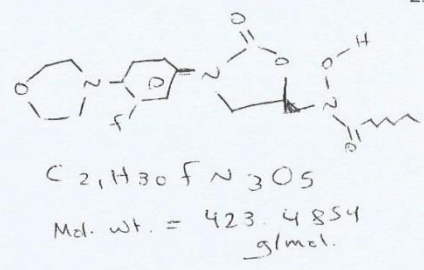 O
H
O
O
N
N
O
O
N
F
O
C21H30FN3O5
Mol. wt. = 423.4854
g/mol.